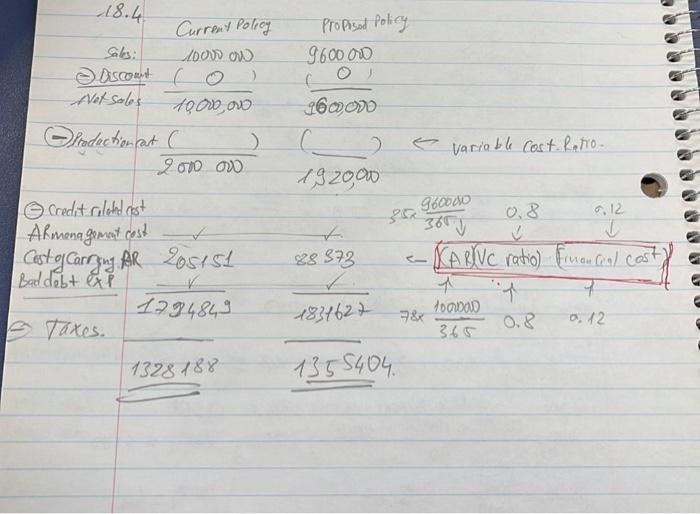 18.4
Current Policy Proposed Policy
Sales: 10000 000 9600 000
⊖ Discount ( 0 ) ( 0 )
Net Sales 10,000,000 9600,000
⊖ Production cost ( ) ( ) ← variable Cost. Ratio.
2000 000 1,920,000
⊖ Credit related cost 35x 9600000/365 ↓ 0.8 ↓ 0.12 ↓
AR management cost ✓ ✓
Cost of Carrying AR 205151 88373 ← (AR)(VC ratio) (financial cost)
Bad debt exp ✓ ✓ ↑ ↑ ↑
1794849 1831627 78x 10000000/365 0.8 0.12
⊖ Taxes.
1328188 1355404.